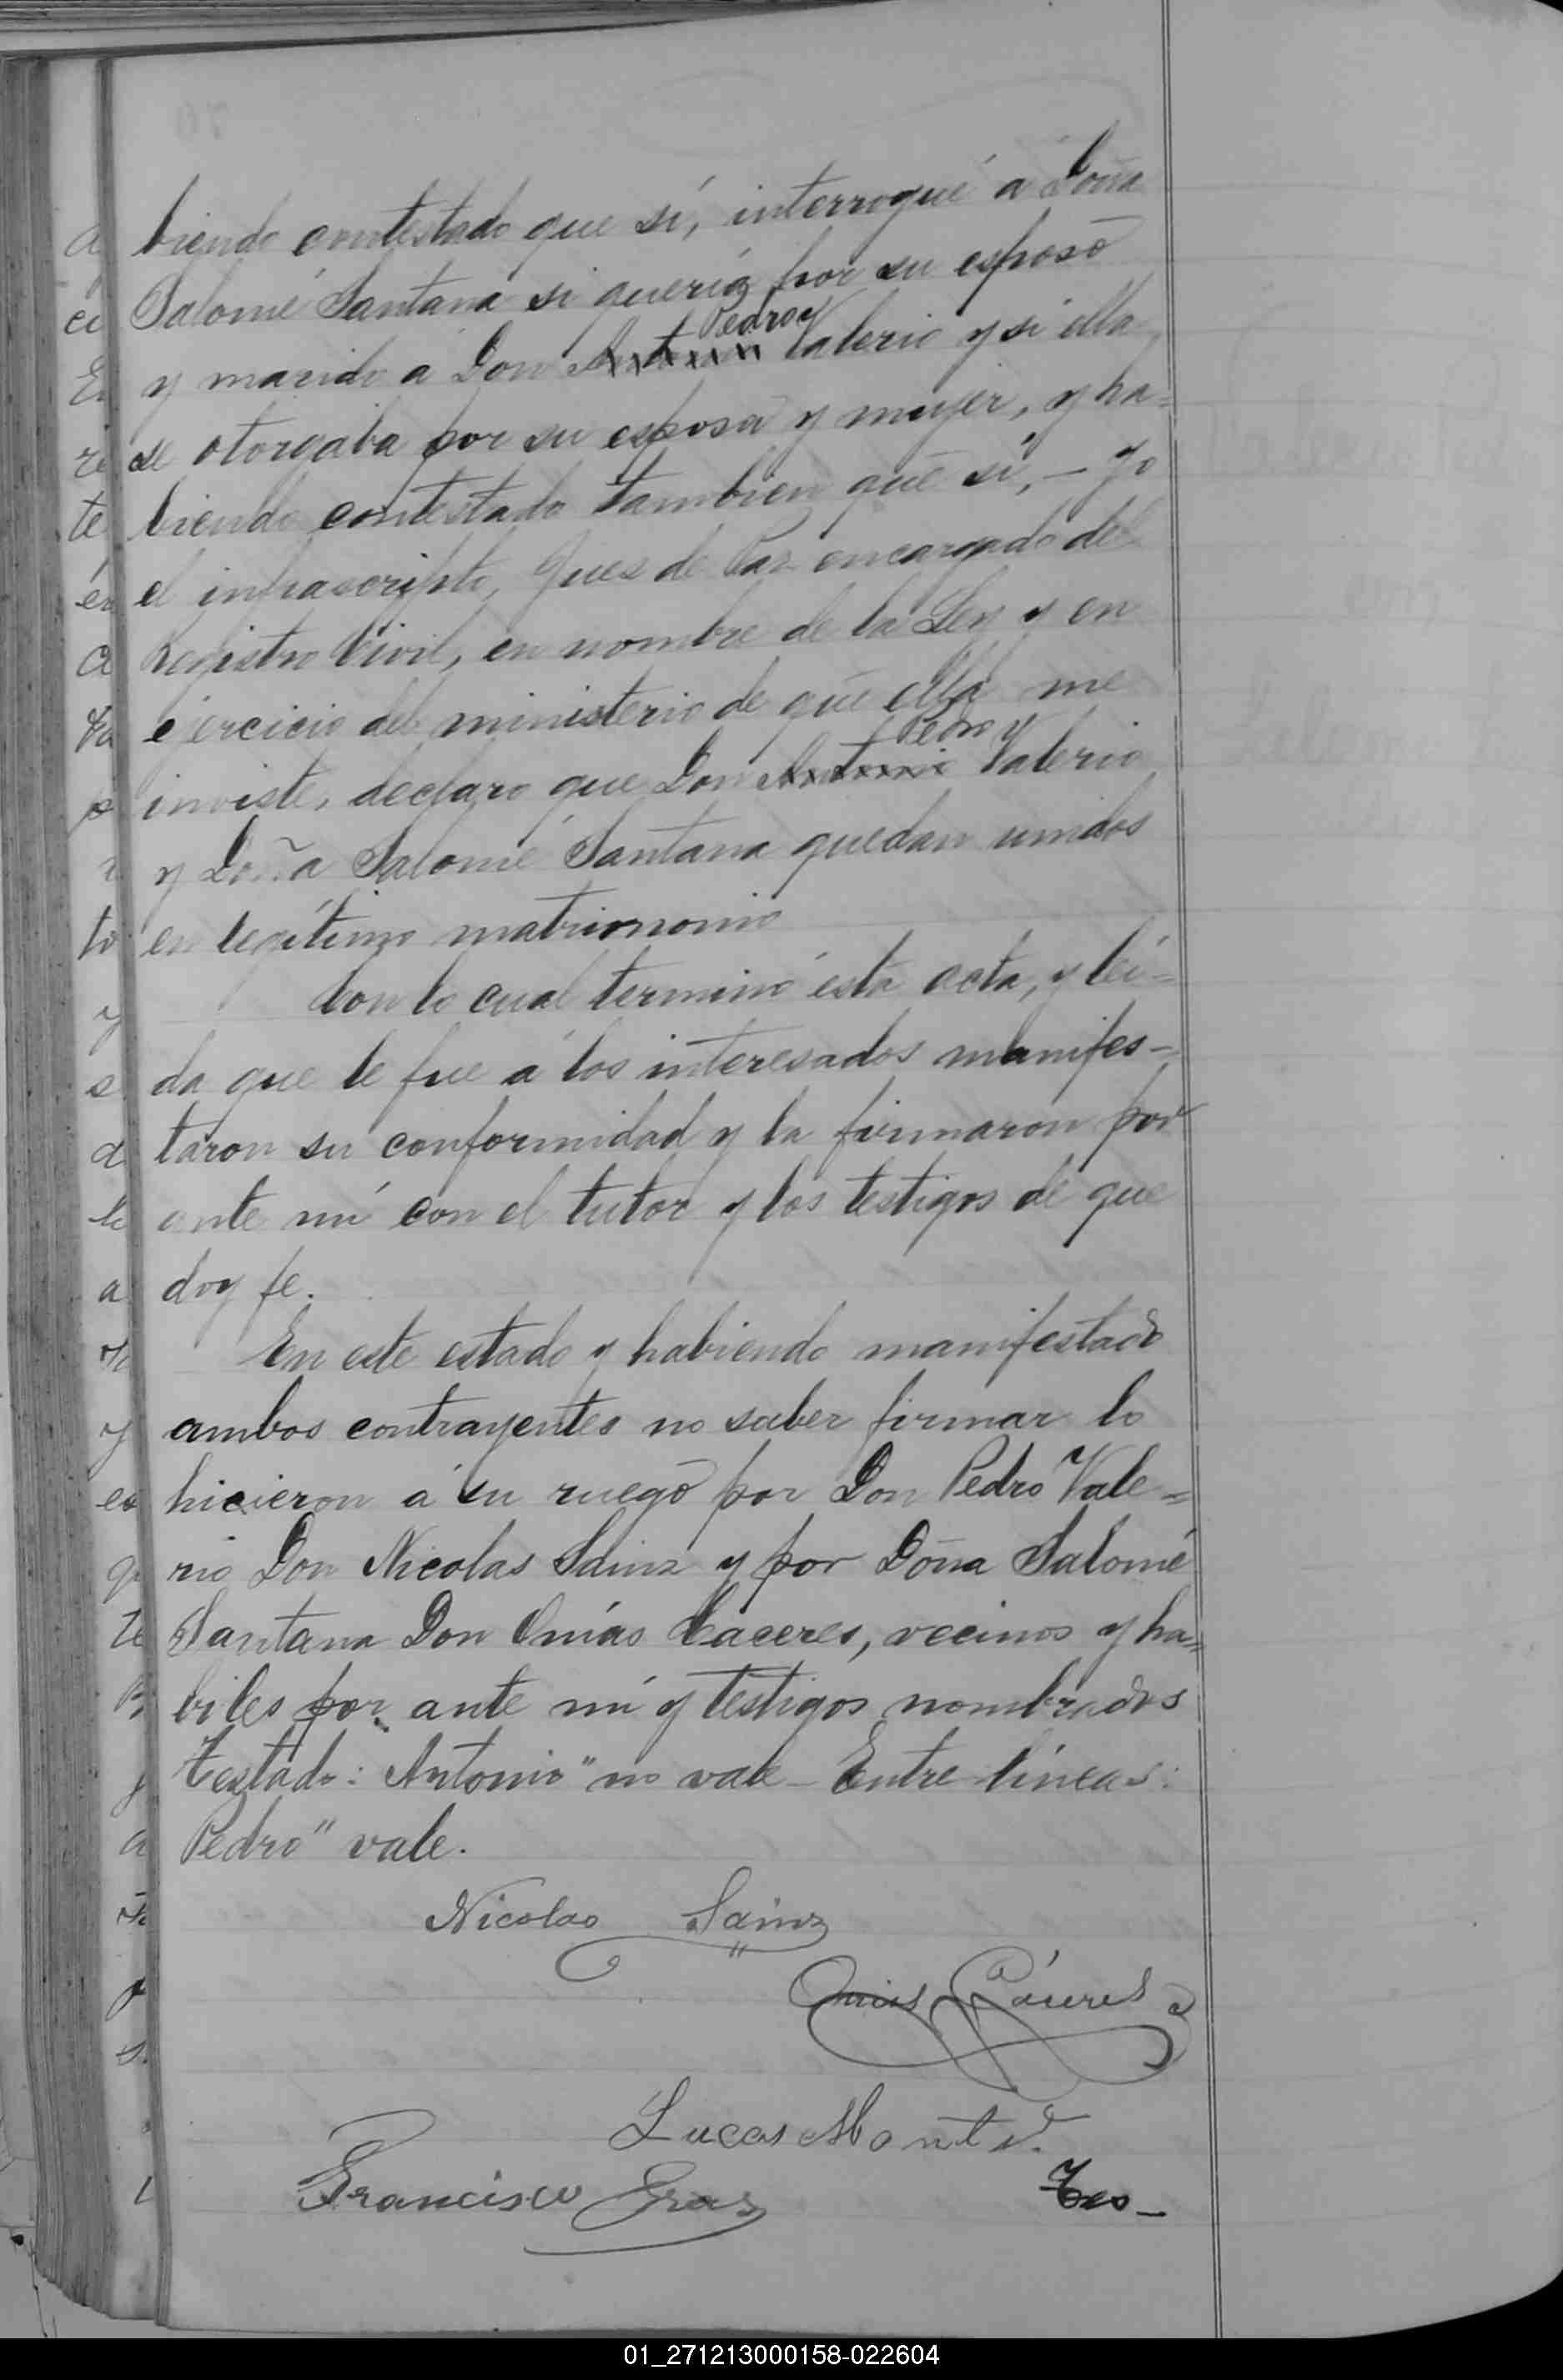 biendo contestado que sí, interrogué á Doña
Salomé Santana si quería por su esposo
Pedro
y marido á Don Antonio Valerio y si ella
se otorgaba por su esposa y mujer, y ha=
biendo contestado tambien que sí, — Yo
el infrascripto, Juez de Paz encargado del
Registro Civil, en nombre de la Ley y en
ejercicio del ministerio de que ella me
Pedro
inviste, declaro que Don Antonio Valerio
y Doña Salomé Santana quedan unidos
en legítimo matrimonio
Con lo cual terminó esta acta, y lei-
da que le fue á los interesados manifes-
taron su conformidad y la firmaron por
ante mí con el tutor y los testigos de que
doy fe.
En este estado y habiendo manifestado
ambos contrayentes no saber firmar lo
hicieron á su ruego por Don Pedro Vale=
rio Don Nicolas Sainz y por Doña Salomé
Santana Don Onías Cáceres, vecinos y ha=
biles por ante mí y testigos nombrados
Testado: Antonio" no vale — Entre líneas:
Pedro" vale.
Nicolas Sainz
Onias Cáceres
Lucas
Francisco
01_271213000158-022604